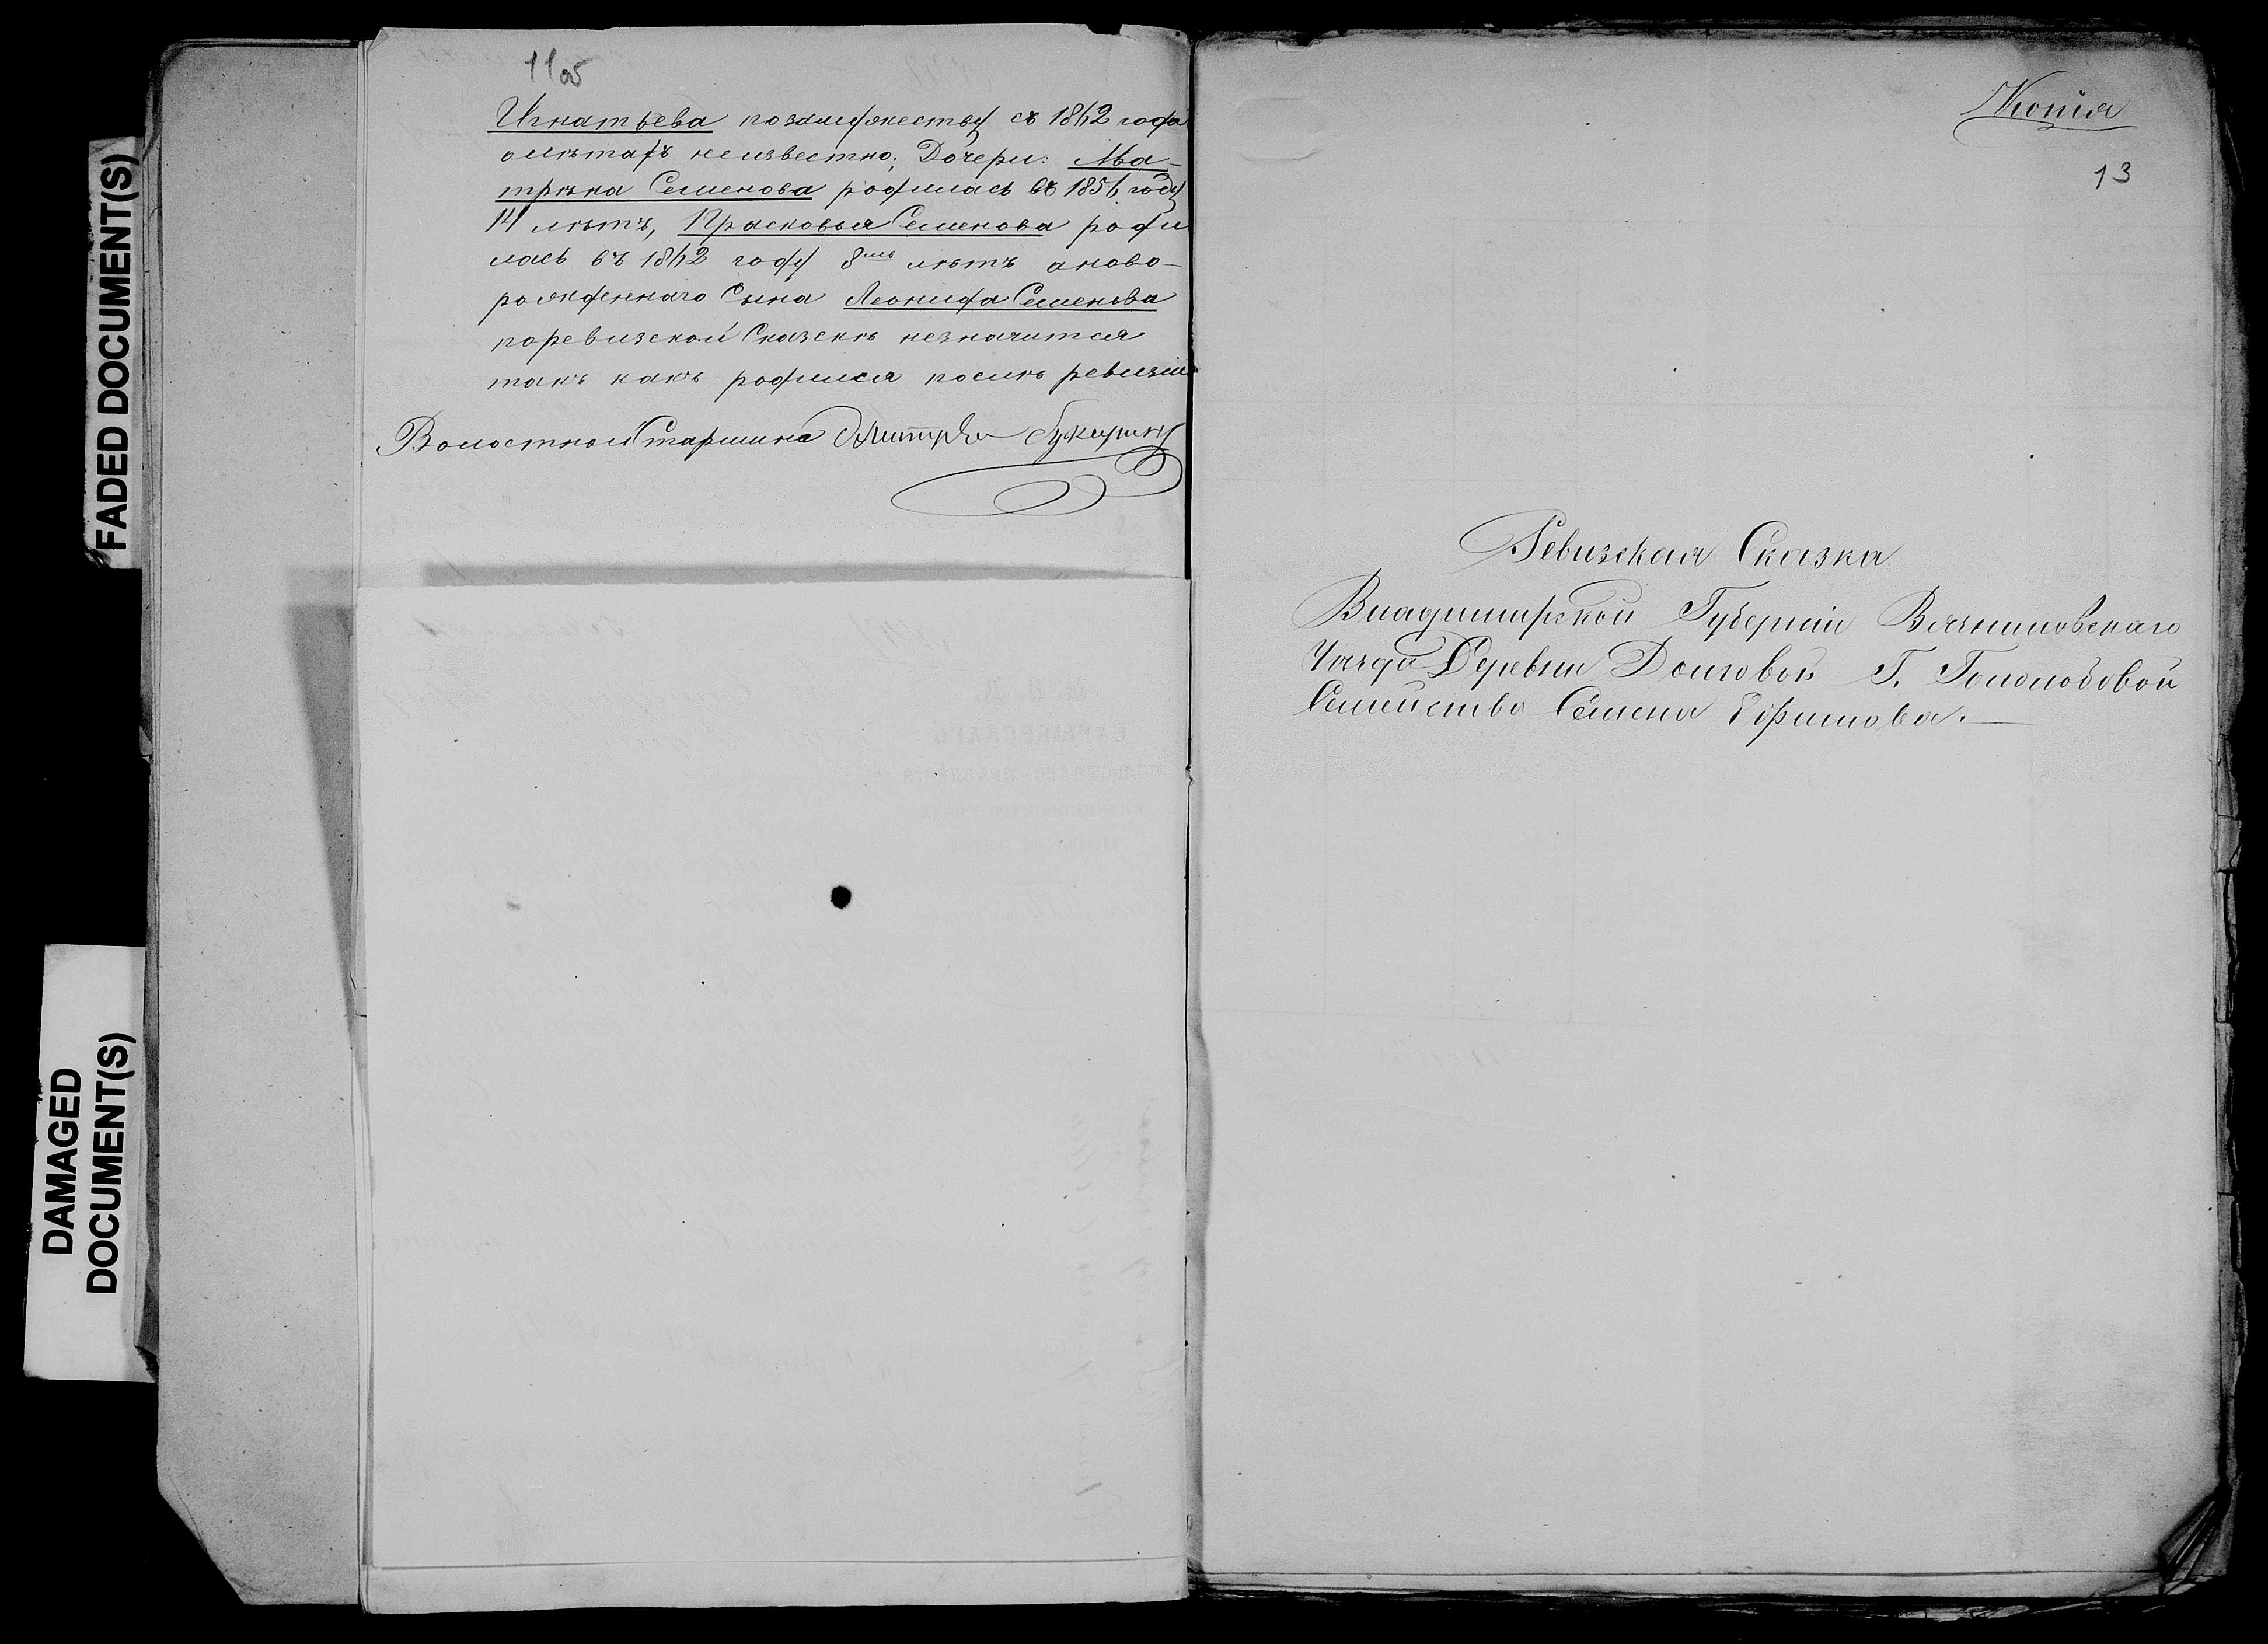 FADED DOCUMENT(S)
DAMAGED
DOCUMENT(S)
11об
Игнатьева позамужеству съ 1842 года
олѣтахъ неизвестно; Дочери: Ма-
трѣна Семенова родилась въ 1836 году
14 лѣтъ, Прасковья Семенова роди
лась въ 1842 году 8мь лѣтъ аново-
рожденнаго Сына Леонида Семенова
поревизской Сказскѣ незначится
такъ какъ родился послѣ ревизіи
Волостной Старшина Дмитрій
Копія
13
Ревизская Сказка
Владимирской Губерніи Вязниковскаго
Уѣзда Деревни Долговой Г. Гололобовой
Семейство Семена Ефимова.—